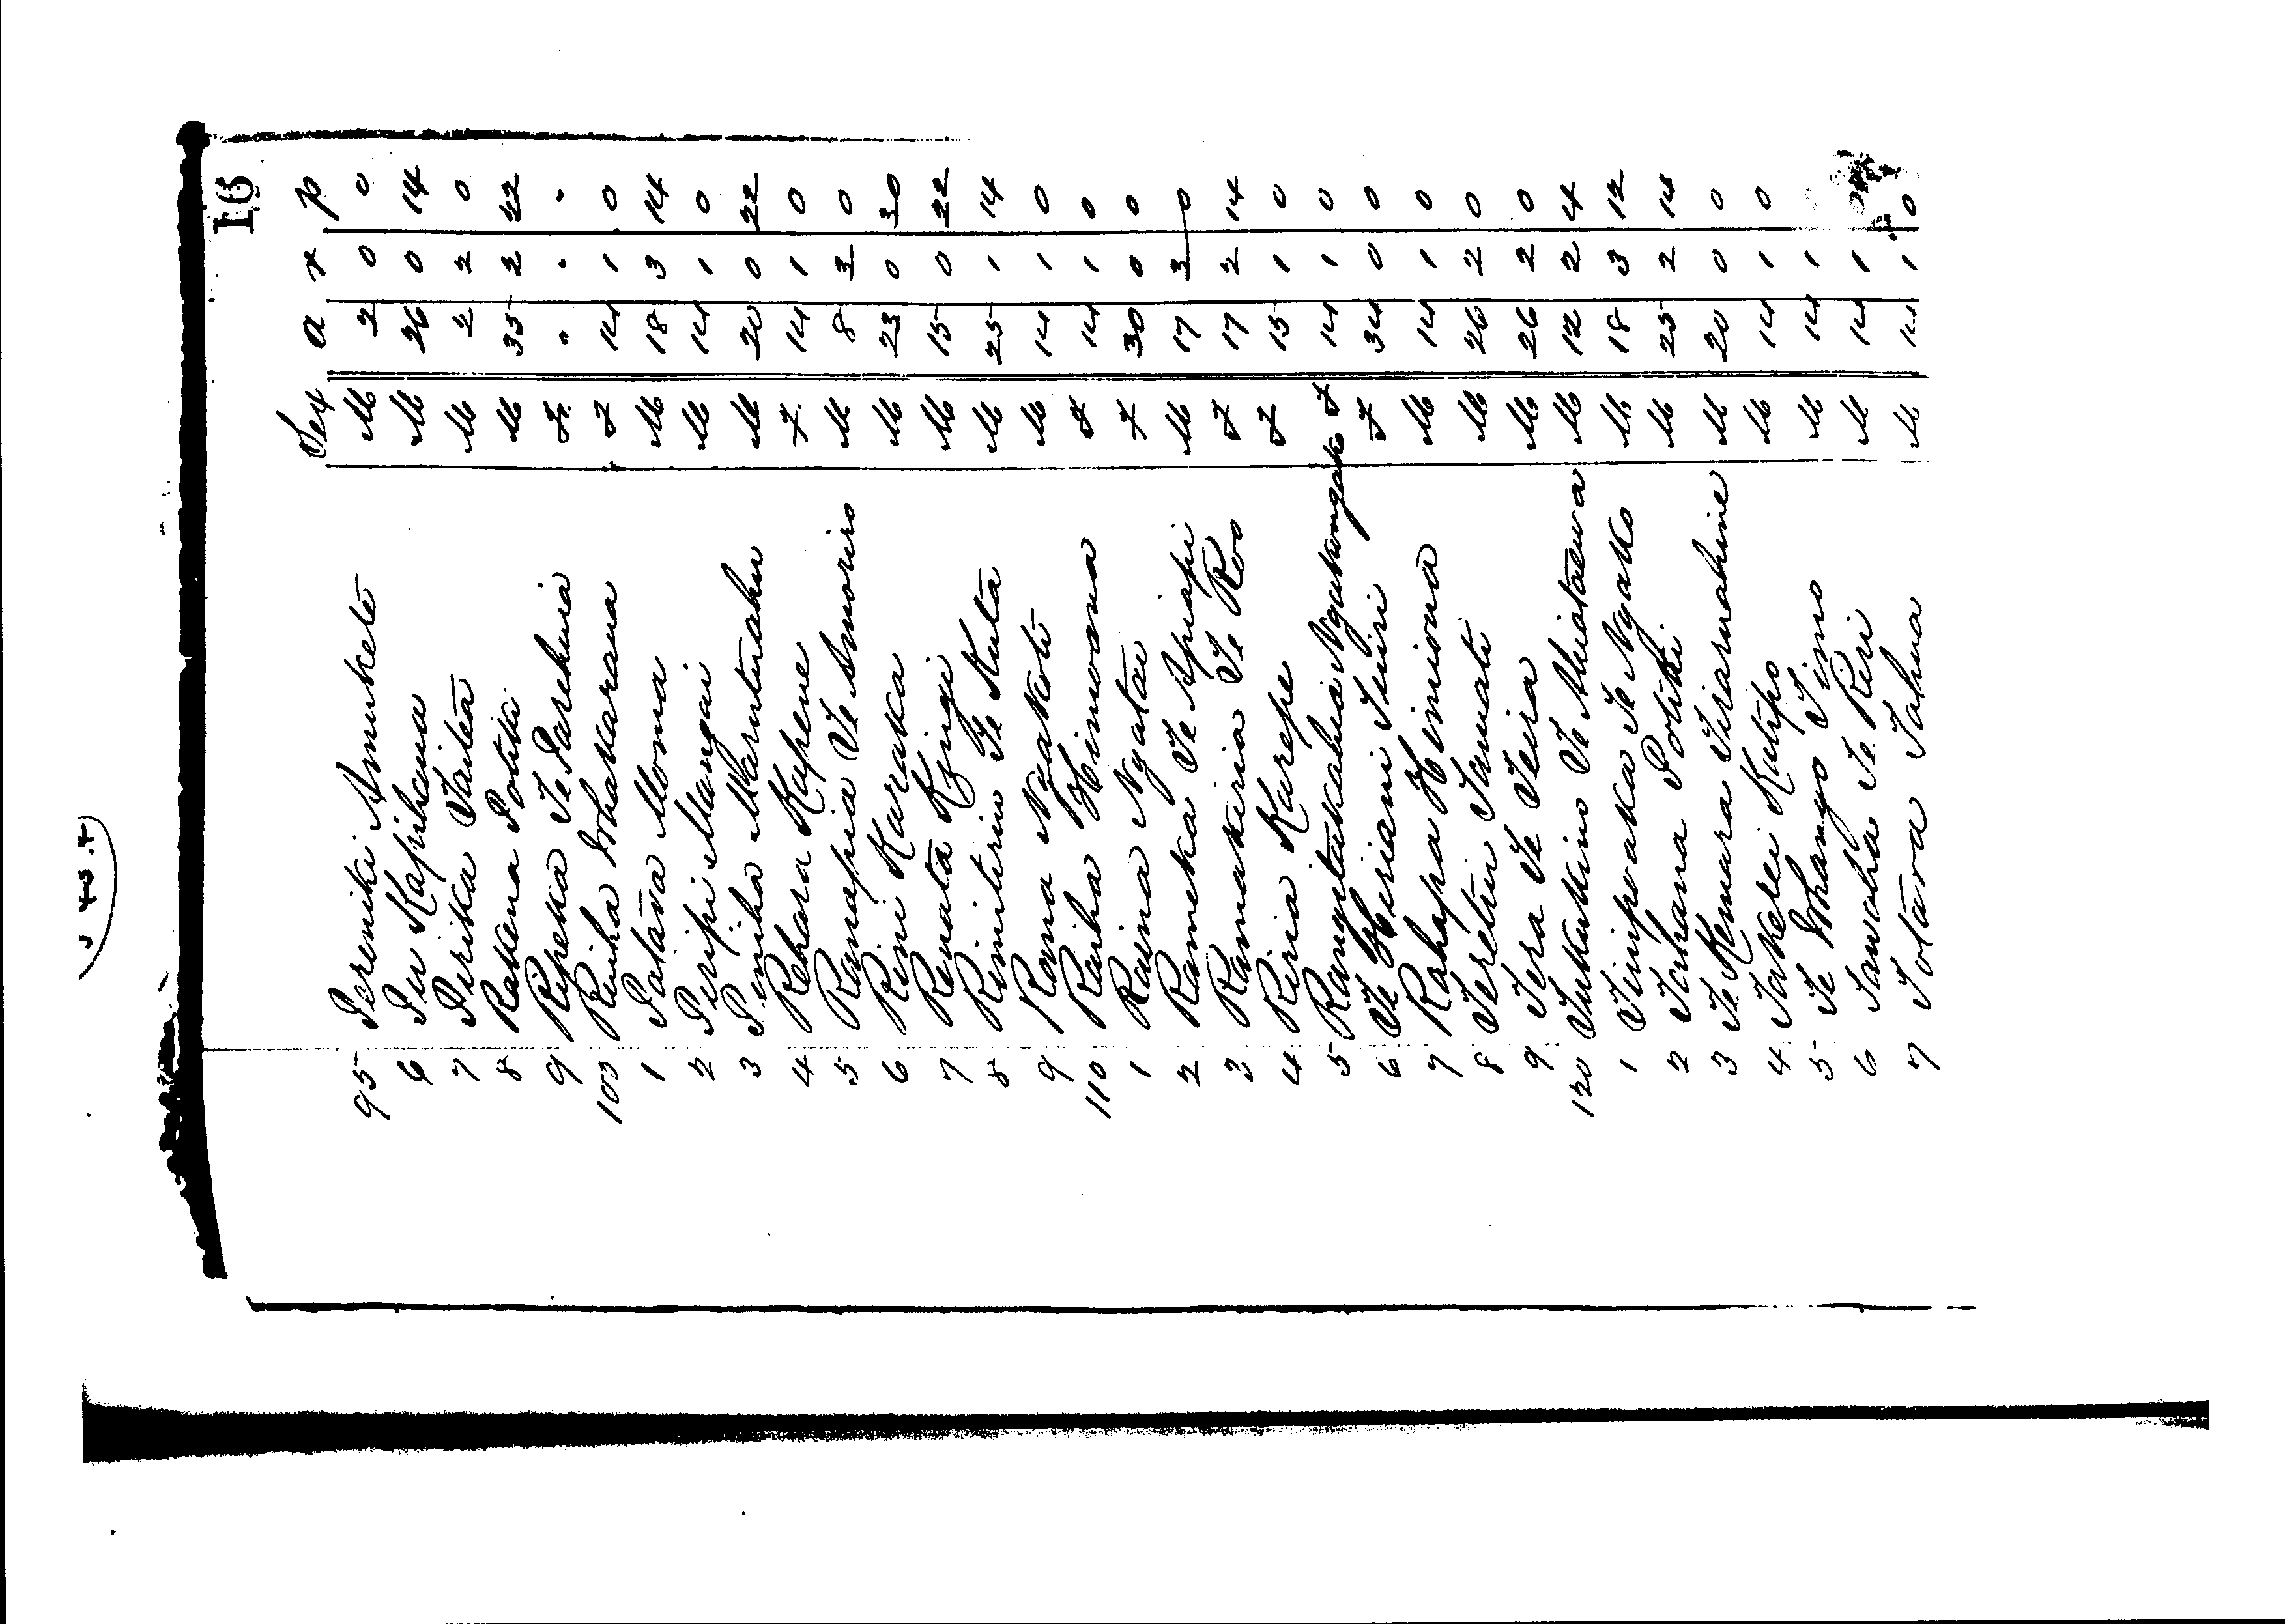 16
Sex a r p
95 Pereniki Amukete M 2 0 0
6 Piu Kapihana M 26 0 14
7 Piripika Taitea M 2 2 0
8 Ratena Potiki M 35 2 22
9 Ripeka Te Parekuia F. " " "
100 Ruiha Whakarana F 14 1 0
1 Patara Moma M 18 3 14
2 Piripi Mangai M 14 1 0
3 Pumiha Marutuahu M 20 0 22
4 Rehara Kapene F. 14 1 0
5 Ranapia Te Amoriro M 8 3 0
6 Rini Karaka M 23 0 30
7 Renata Kingi M 15 0 22
8 Rimitiriu Te Kuta M 25 1 14
9 Rona Ngakoti M 14 1 0
110 Raiha Hinuoona F 14 1 0
1 Raina Ngatai F 30 0 0
2 Rameka Te Apiapi M 17 3 0
3 Ramakiria Te Roo F 17 2 14
4 Riria Karepe F 15 1 0
5 Rangitukaahia F 14 1 0
6 Te Hiriani Tuiri F 34 0 0
7 Rahapa Hiniona M 14 1 0
8 Teretiu Tamati M 26 2 0
9 Tera Te Teira M 26 2 0
120 Tukukino Te Ahiataewa M 12 2 4
1 Tinipoaka Te Ngako M 18 3 12
2 Tahana Potiki M 25 2 14
3 Te Kemara Tirarahine M 20 0 0
4 Takerei Kutipo M 14 1 0
5 Te Whango Timo M 14 1
6 Tawaha Te Riri M 14 1 0
7 Totara Tahua M 14 1 0